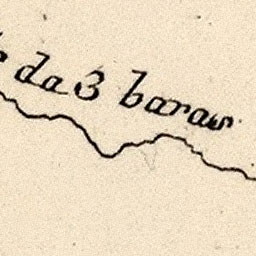 da 3 baras